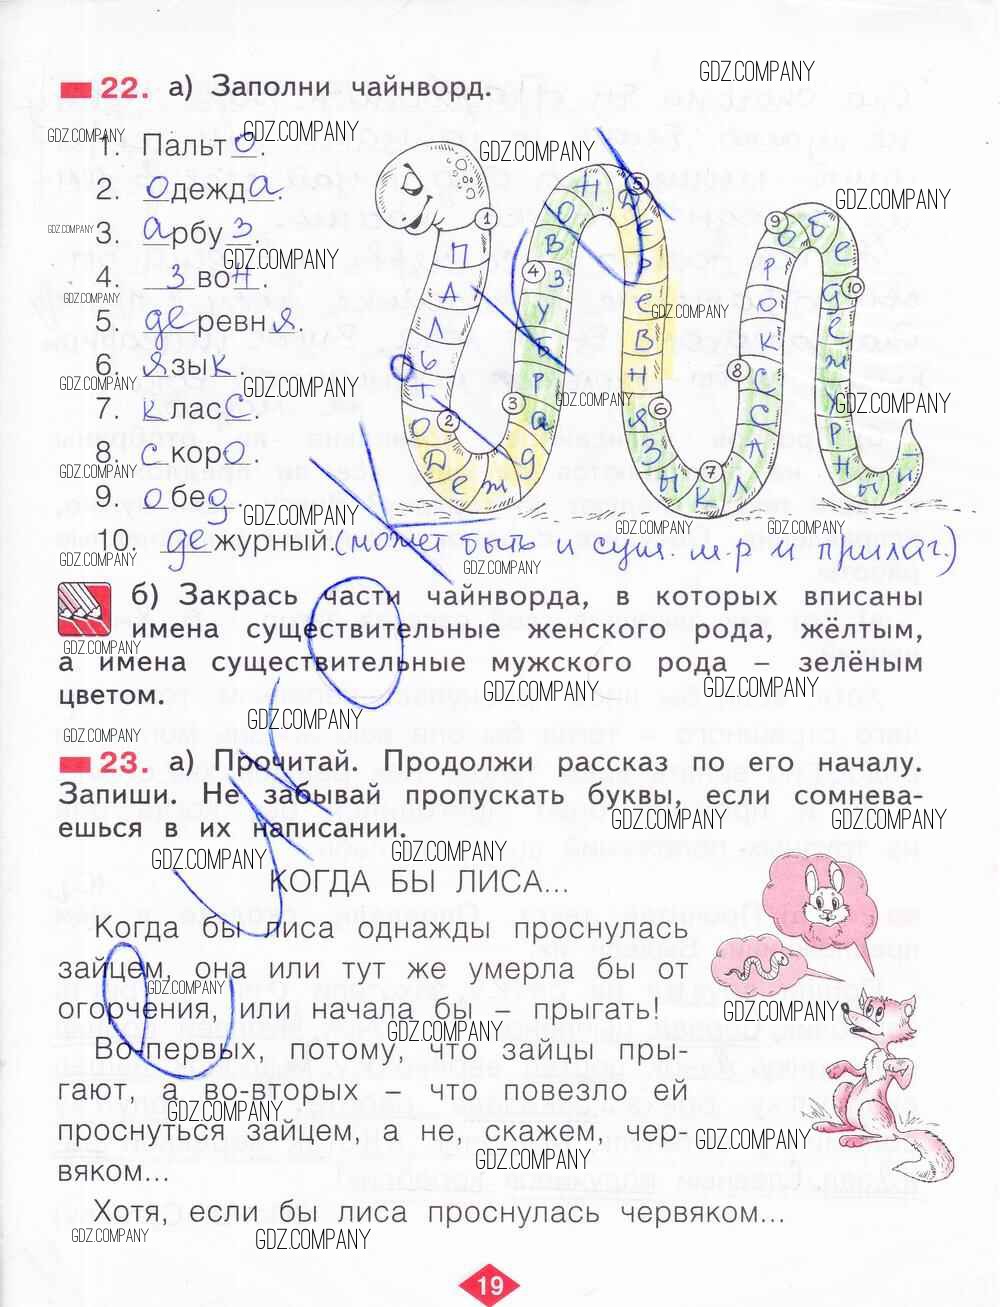 22. а) Заполни чайнворд.
1. Пальто.
2. одежда.
3. арбуз.
4. звон.
5. деревня.
6. язык.
7. класс.
8. скоро.
9. обед.
10. дежурный. (может быть и сущ. м.р и прилаг.)
б) Закрась части чайнворда, в которых вписаны
имена существительные женского рода, жёлтым,
а имена существительные мужского рода – зелёным
цветом.
23. а) Прочитай. Продолжи рассказ по его началу.
Запиши. Не забывай пропускать буквы, если сомнева-
ешься в их написании.
КОГДА БЫ ЛИСА...
Когда бы лиса однажды проснулась
зайцем, она или тут же умерла бы от
огорчения, или начала бы – прыгать!
Во-первых, потому, что зайцы пры-
гают, а во-вторых – что повезло ей
проснуться зайцем, а не, скажем, чер-
вяком...
Хотя, если бы лиса проснулась червяком...
GDZ.COMPANY
19